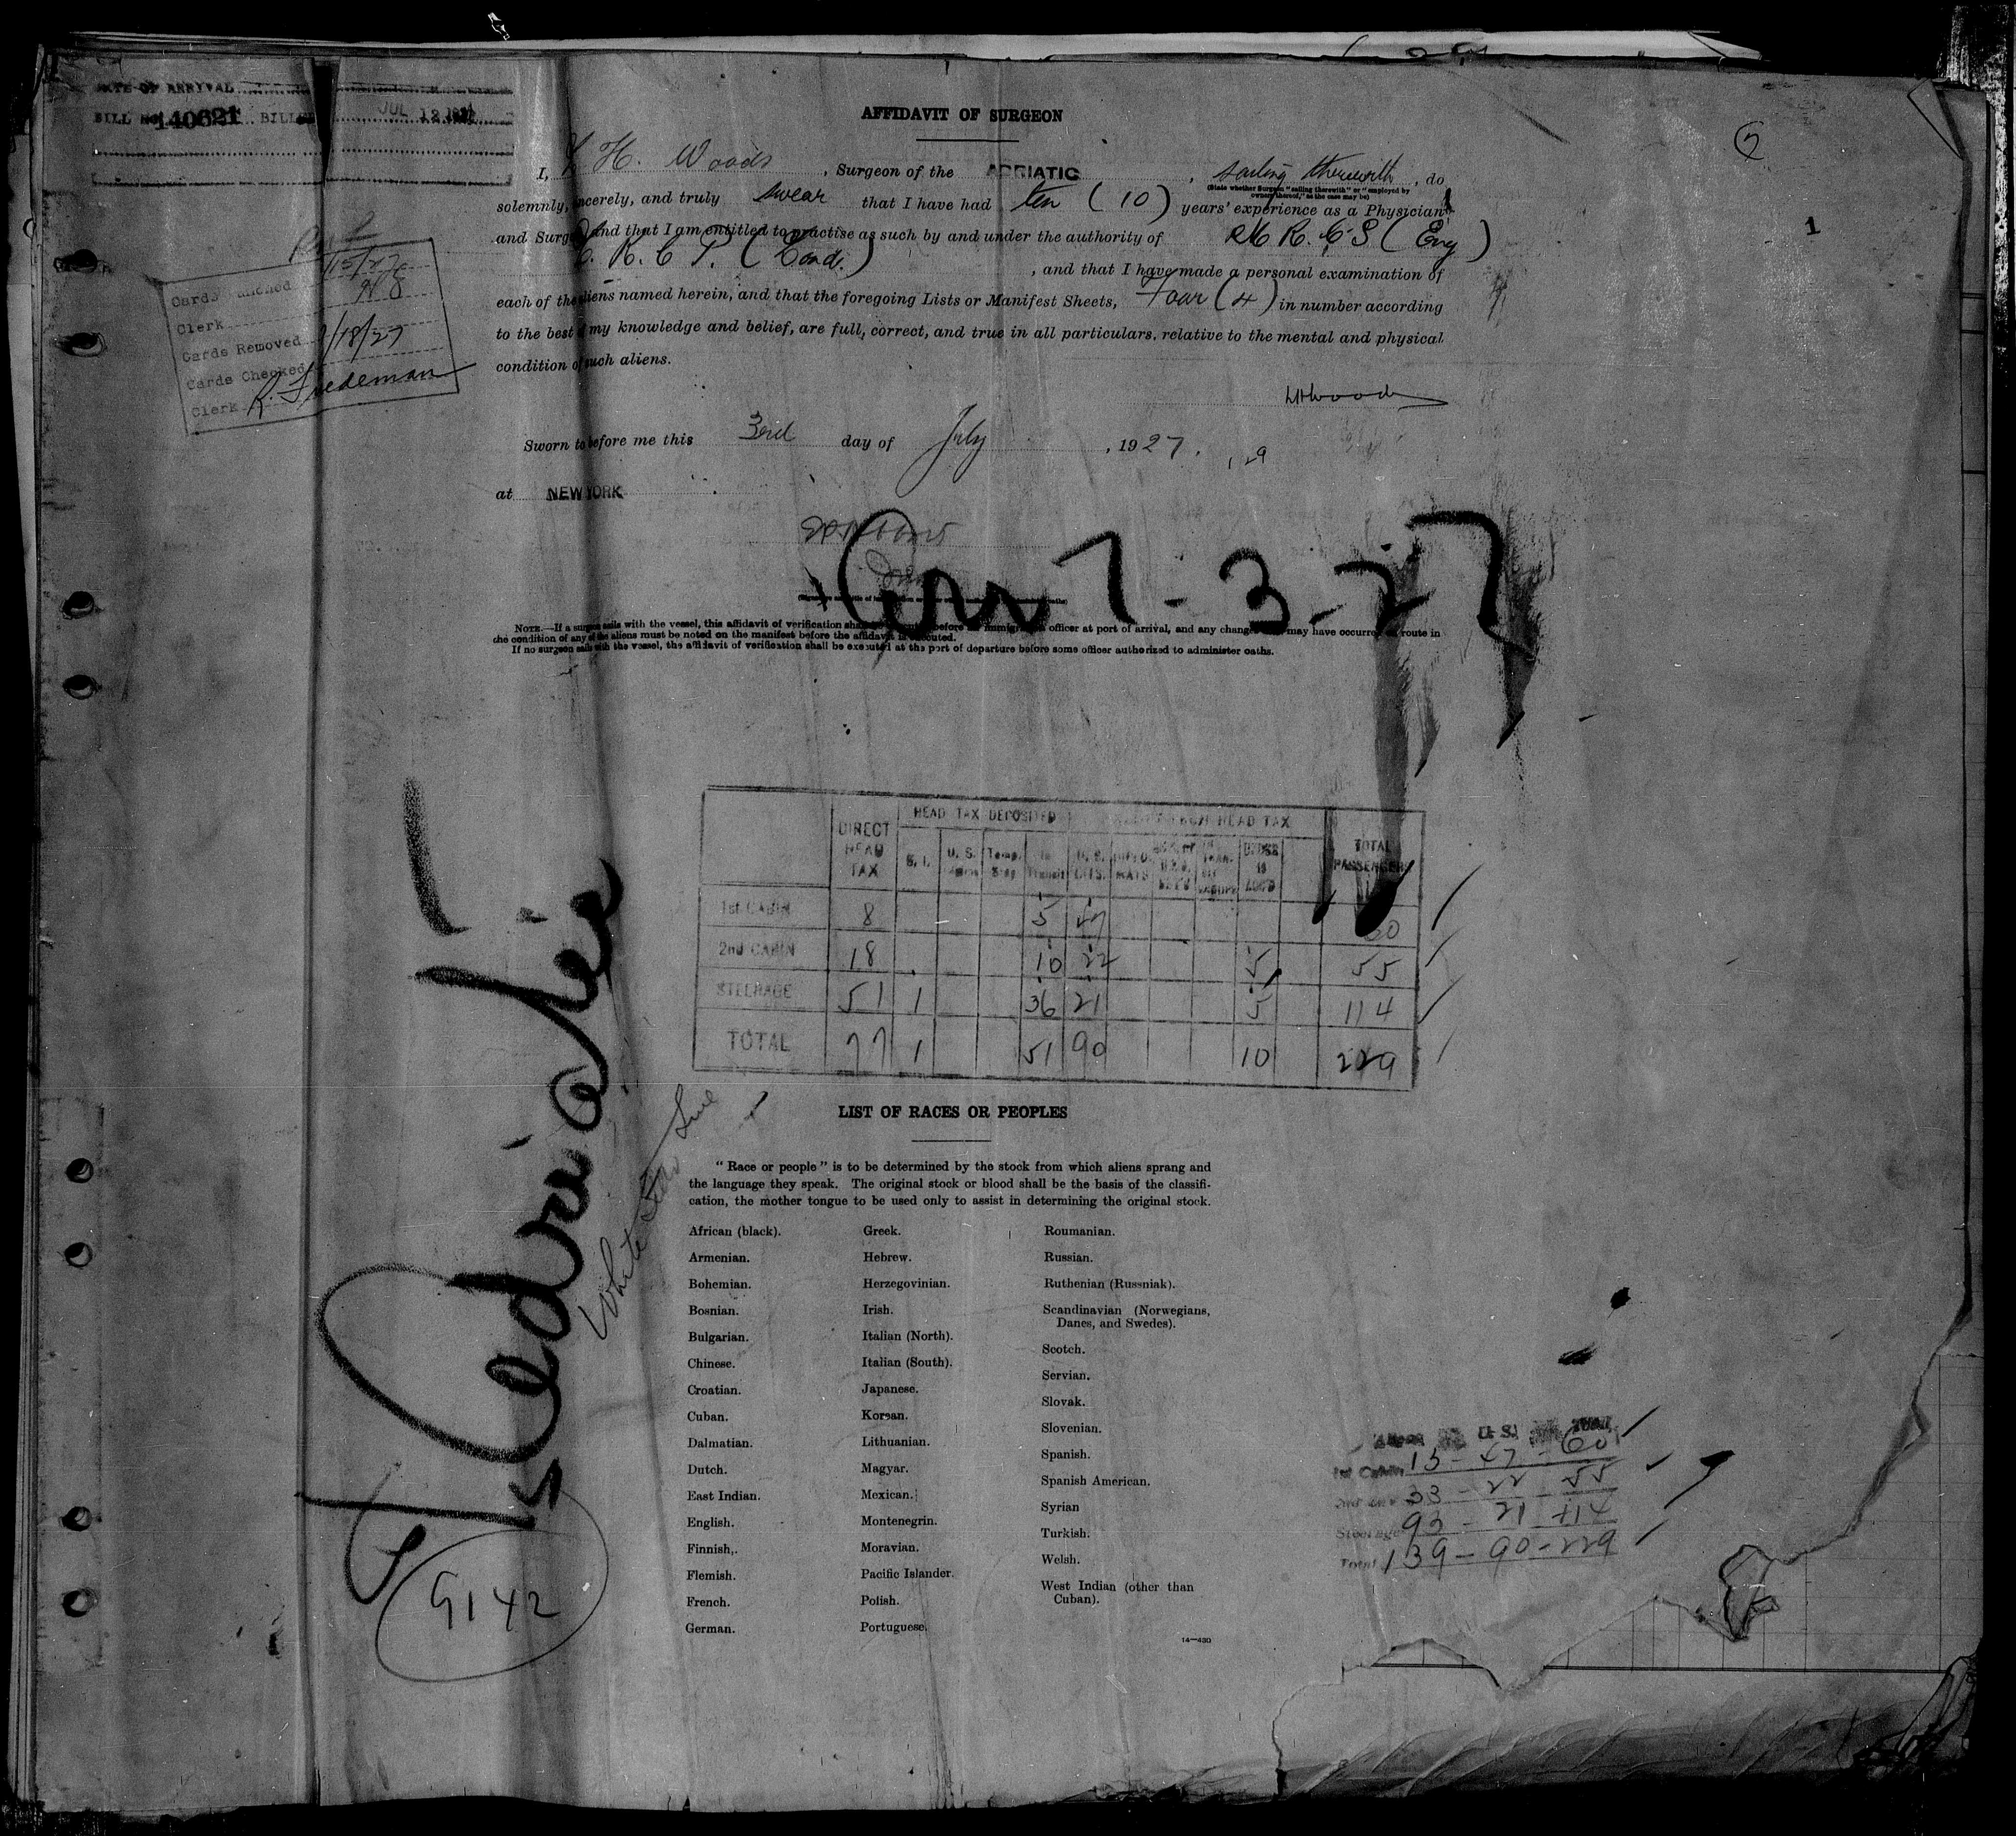 DATE OF ARRYVAL
BILL No 140621 BILLED JUL 12 1927
AFFIDAVIT OF SURGEON
I, H. Woods, Surgeon of the ADRIATIC, sailing therewith, do
(State whether Surgeon "sailing therewith" or "employed by
owners thereof," as the case may be)
solemnly, sincerely, and truly swear that I have had ten (10) years' experience as a Physician
and Surgeon and that I am entitled to practise as such by and under the authority of M.R.C.S (Eng)
L.R.C.P. (Lond.), and that I have made a personal examination of
each of the aliens named herein, and that the foregoing Lists or Manifest Sheets, Four (4) in number according
to the best of my knowledge and belief, are full, correct, and true in all particulars, relative to the mental and physical
condition of such aliens.
LHWoods
Sworn to before me this 3rd day of July, 1927.
129
at NEW YORK
7-3-27
NOTE.—If a surgeon sails with the vessel, this affidavit of verification officer at port of arrival, and any changes may have occurred route in
the condition of any of the aliens must be noted on the manifest before the affidavit is executed.
If no surgeon sails with the vessel, the affidavit of verification shall be executed at the port of departure before some officer authorized to administer oaths.
2
1
Cards Punched 7/15/27
Clerk
Cards Removed 7/18/27
Cards Checked
Clerk R. Friedeman
DIRECT HEAD TAX HEAD TAX DEPOSITED HEAD TAX TOTAL PASSENGERS
S. I. U. S. Temp. In Transit U. S. CITS.
1st CABIN 8 5 47 60
2nd CABIN 18 10 22 5 55
STEERAGE 51 1 36 21 5 114
TOTAL 77 1 51 90 10 229
SS Adriatic
White Star Line
9142
LIST OF RACES OR PEOPLES
"Race or people" is to be determined by the stock from which aliens sprang and
the language they speak. The original stock or blood shall be the basis of the classifi-
cation, the mother tongue to be used only to assist in determining the original stock.
African (black).
Armenian.
Bohemian.
Bosnian.
Bulgarian.
Chinese.
Croatian.
Cuban.
Dalmatian.
Dutch.
East Indian.
English.
Finnish,.
Flemish.
French.
German.
Greek.
Hebrew.
Herzegovinian.
Irish.
Italian (North).
Italian (South).
Japanese.
Korean.
Lithuanian.
Magyar.
Mexican.
Montenegrin.
Moravian.
Pacific Islander.
Polish.
Portuguese.
Roumanian.
Russian.
Ruthenian (Russniak).
Scandinavian (Norwegians,
Danes, and Swedes).
Scotch.
Servian.
Slovak.
Slovenian.
Spanish.
Spanish American.
Syrian
Turkish.
Welsh.
West Indian (other than
Cuban).
14—430
Aliens U. S. Total
1st Cabin 13 - 47 - 60
2nd 33 - 22 - 55
Steerage 93 - 21 - 114
Total 139 - 90 - 229